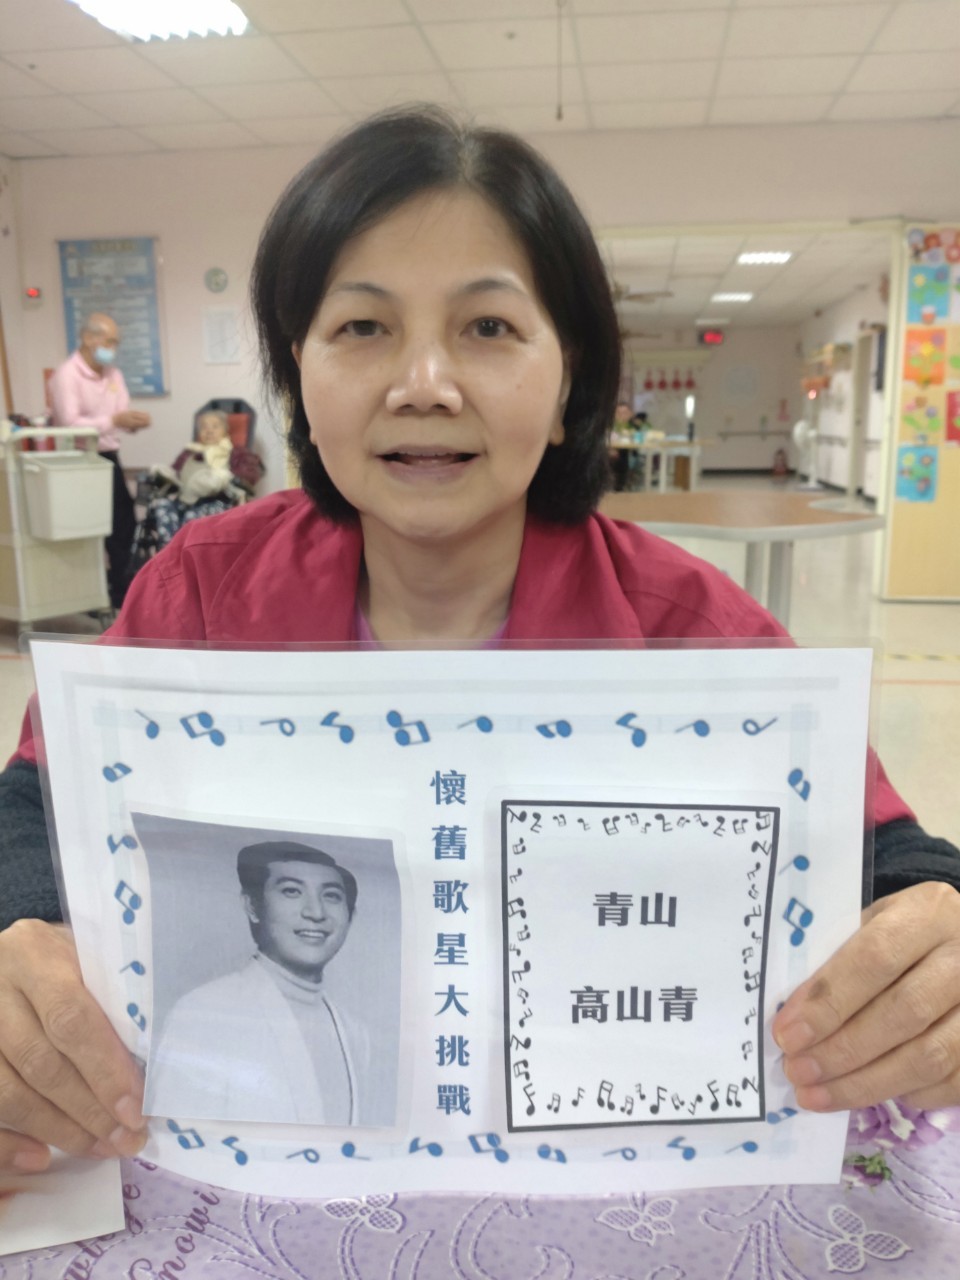 懷舊歌星大挑戰
青山
高山青